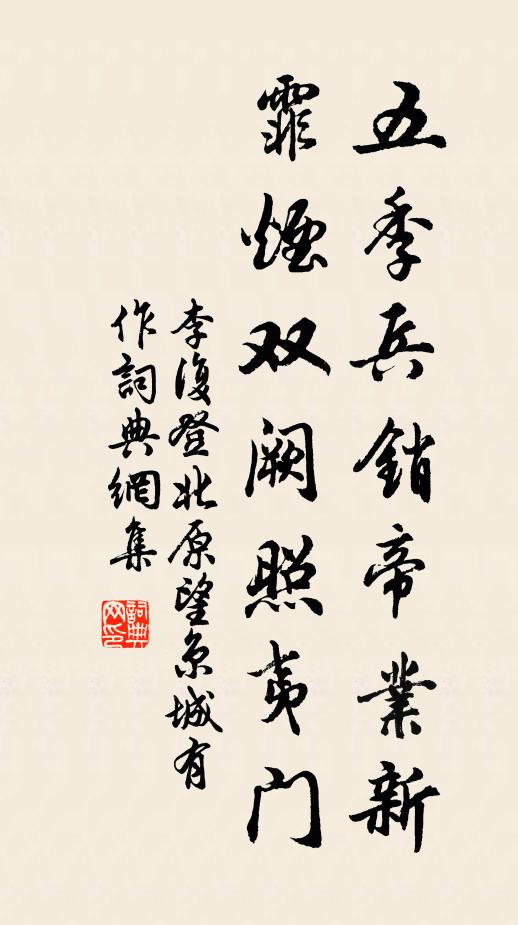 五季兵銷帝業新
霏煙双阙照夷门
李復登北原望京城有
作詞典網集
詞典
网印